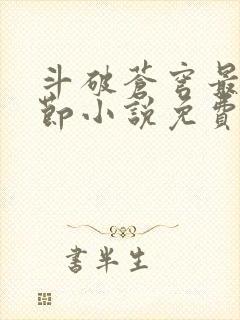 斗破苍穹最
节小说免费
书半生